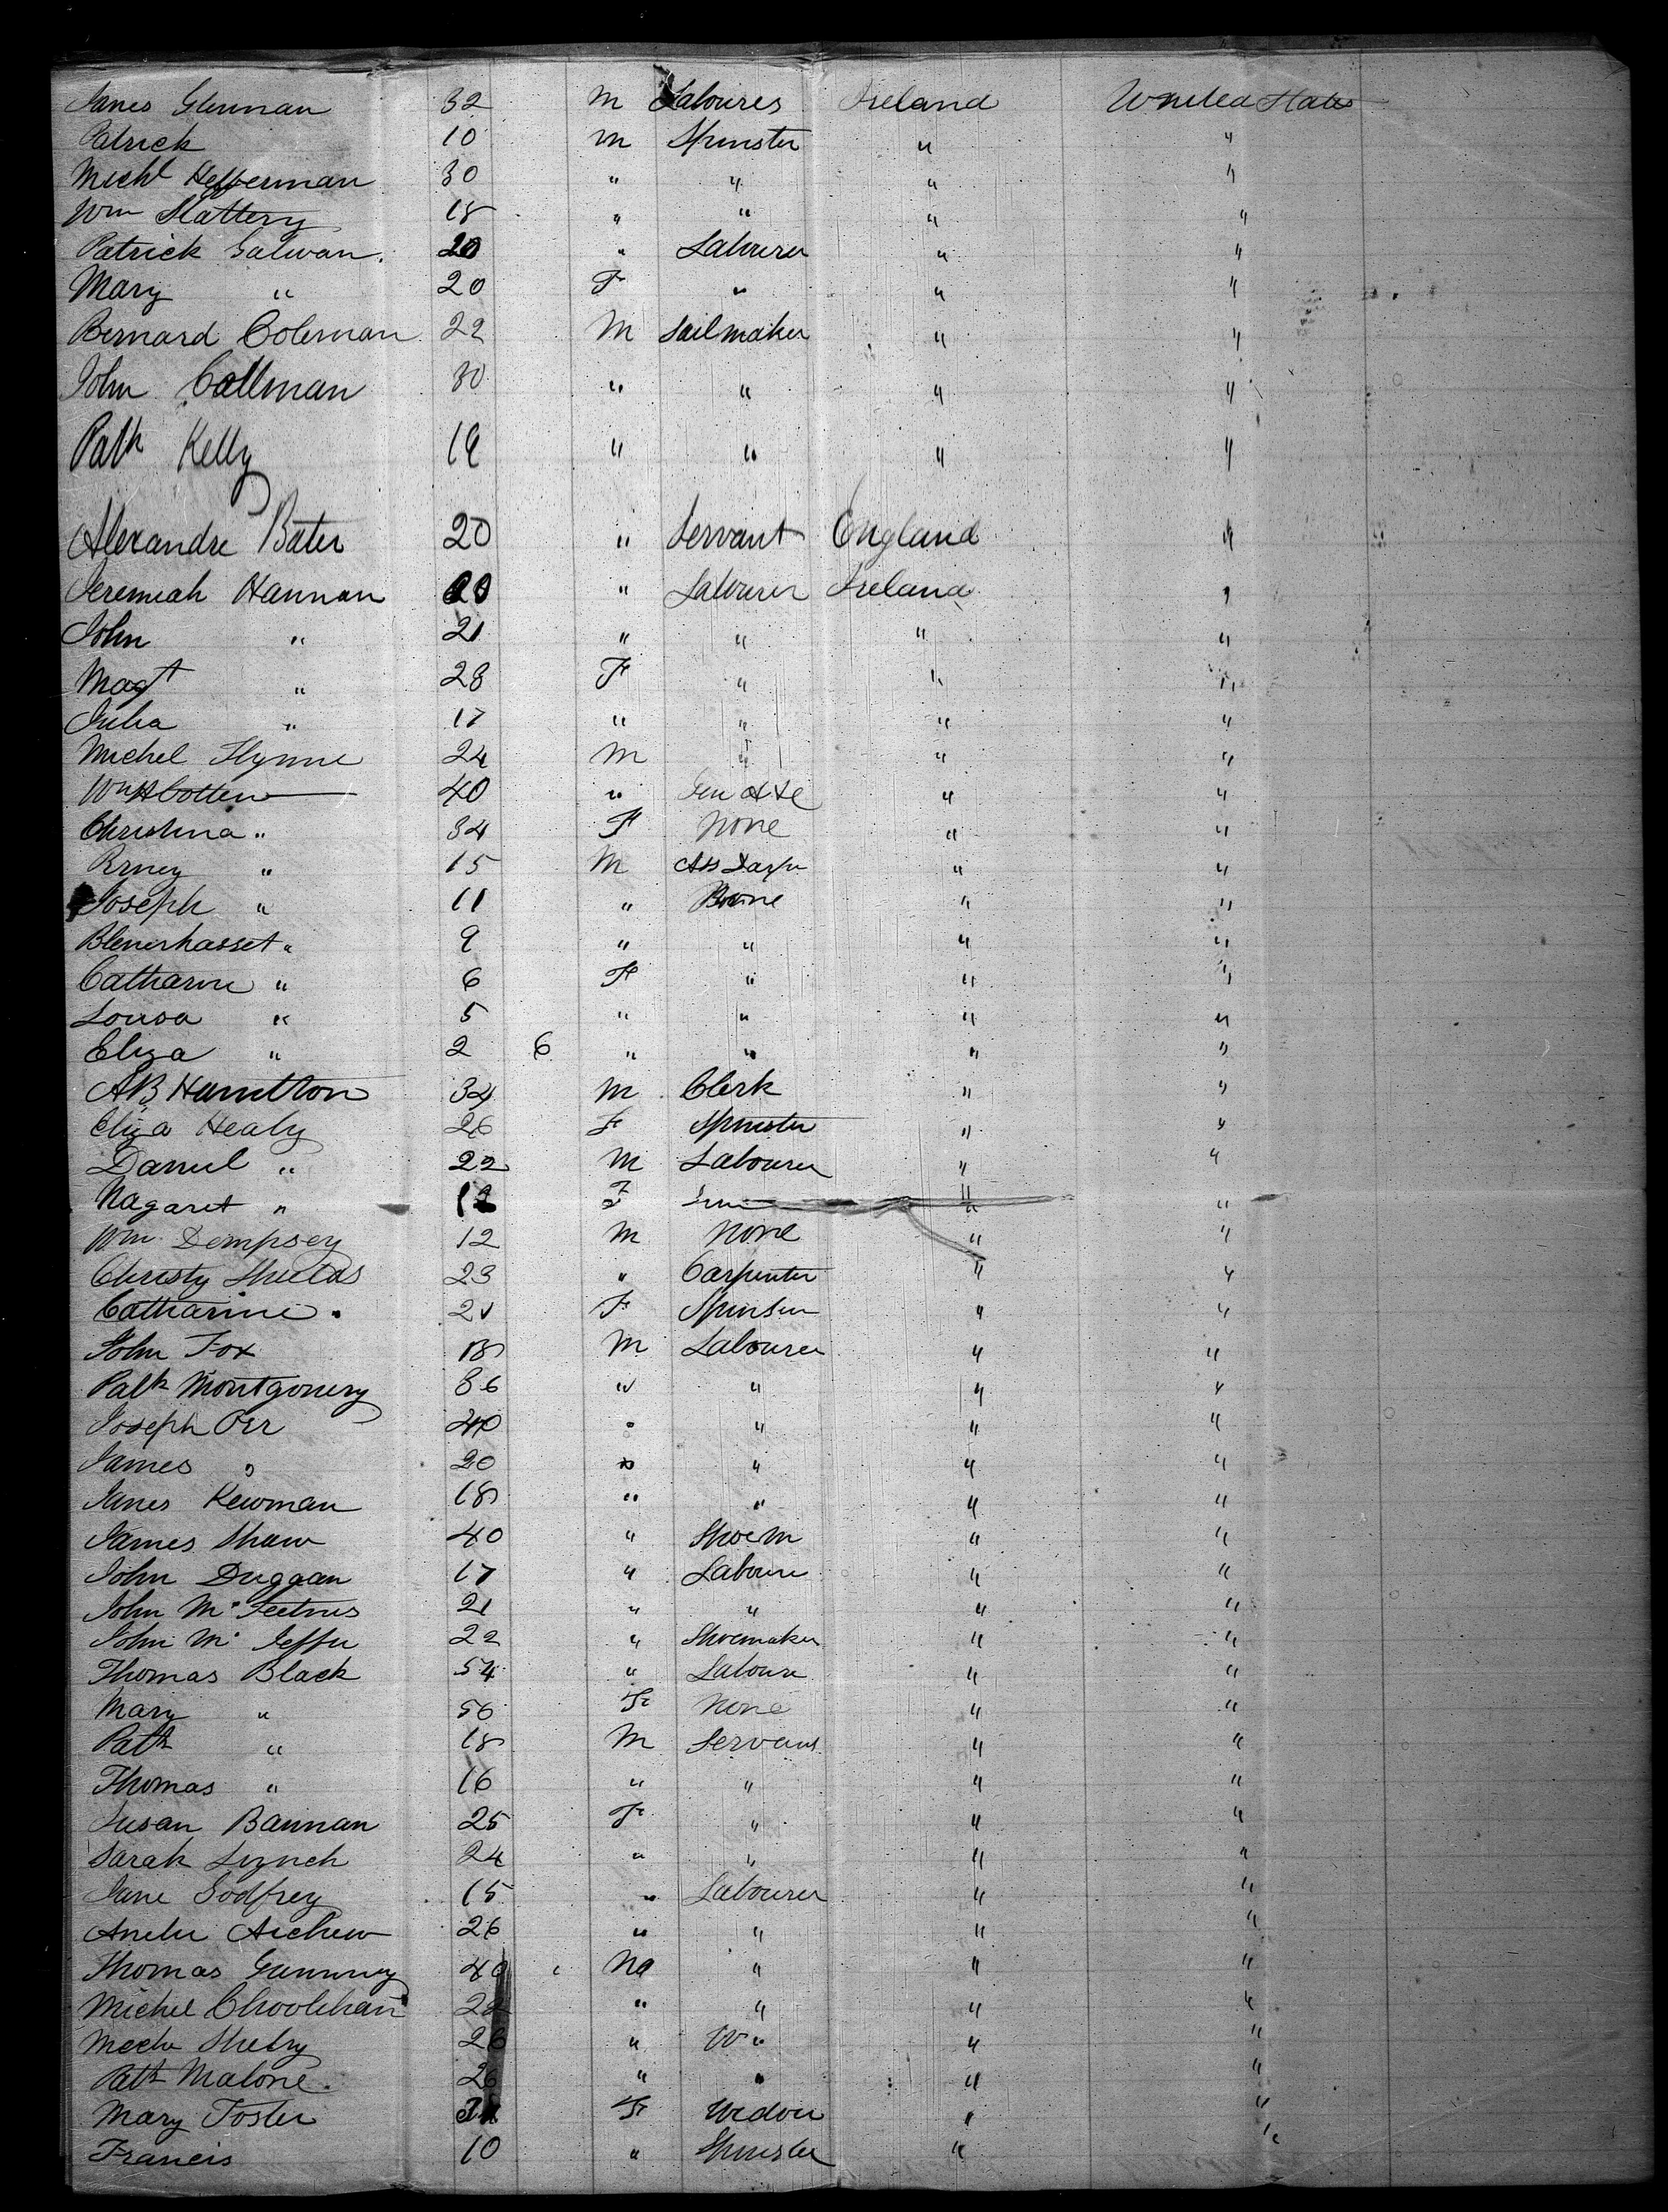 James Glennan 32 M Laboures Ireland United States
Patrick 10 M Spinster " "
Michl Hefferman 30 " " " "
Wm Slattery 18 " " " "
Patrick Galwan. 20 " Labourer " "
Mary " 20 F " " "
Bernard Coleman 22 M Sailmaker " "
John Collman 30 " " " "
Patk Kelly 19 " " " "
Alexandre Bater 20 " Servant England "
Jeremiah Hannan 20 " Labourer Ireland "
John " 21 " " " "
Magt " 28 F " " "
Julia " 17 " " " "
Michel Flynne 24 M " " "
Wm H Cotten 40 " " "
Christina " 34 F None " "
" 15 M " "
Joseph " 11 " " "
Blenerhasset " 9 " " " "
Catharine " 6 F " " "
Lousa " 5 " " " "
Eliza " 2 6 " " " "
AB Hamilton 34 M Clerk " "
Eliza Healy 26 F Spinster " "
Daniel " 22 M Labourer " "
Magaret " 12 F " "
Wm Dempsey 12 M None " "
Christy Shields 23 " Carpenter " "
Catharine " 21 F Spinster " "
John Fox 18 M Labourer " "
Patk Montgomery 36 " " " "
Joseph Orr 40 " " " "
James " 20 " " " "
James Kewman 18 " " " "
James Shaw 40 " Shoe M " "
John Duggan 17 " Laboure " "
John Mc 21 " " " "
John Mc 22 " Shoemaker " "
Thomas Black 54 " Laboure " "
Mary " 56 F None " "
Patk " 18 M Servant " "
Thomas " 16 " " " "
Susan Bannan 25 F " " "
Sarah Lynch 24 " " " "
Jane Godfrey 15 " Labourer " "
26 " " " "
Thomas 40 " " "
Michel 22 " " " "
26 " " "
Patk Malone. 26 " " " "
Mary Foster F Widow " "
Francis 10 " Spinster " "